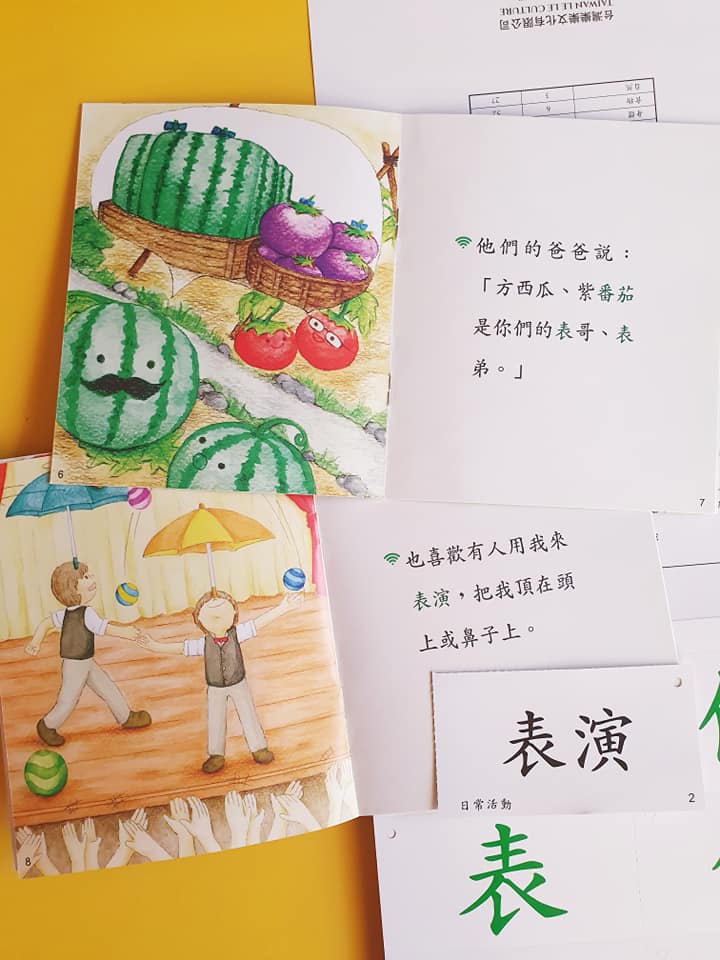 台灣樂樂文化有限公司
TAIWAN LE LE CULTURE
自然 5 27
食物 6
身體 32
他們的爸爸說：
「方西瓜、紫番茄
是你們的表哥、表
弟。」
6
7
也喜歡有人用我來
表演，把我頂在頭
上或鼻子上。
8
表演
日常活動
2
表